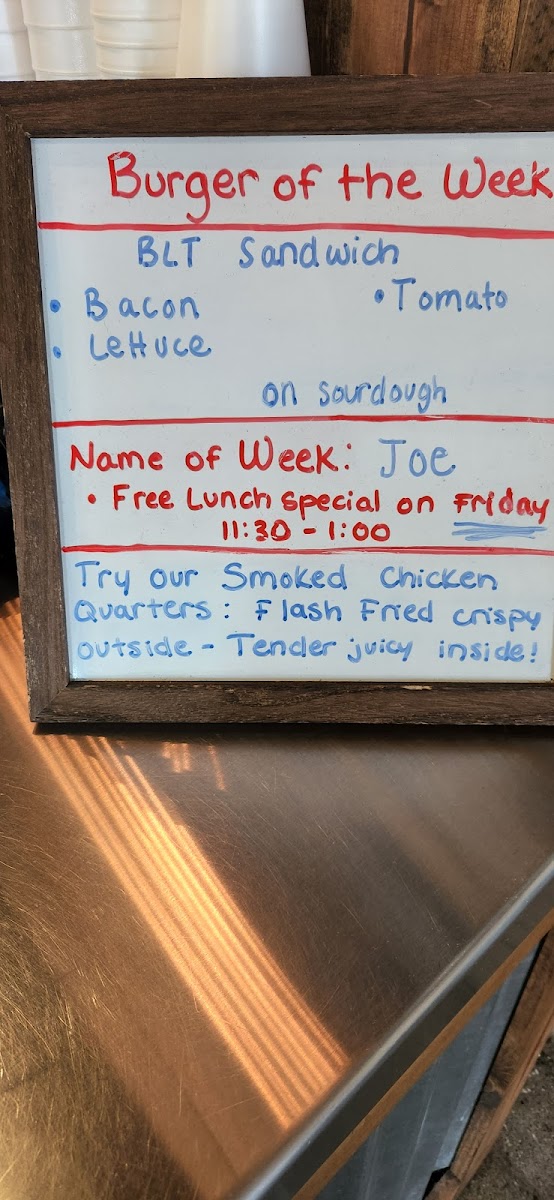 Burger of the Week
BLT Sandwich
• Bacon
• Tomato
• Lettuce
on sourdough
Name of Week: Joe
• Free Lunch special on Friday
11:30 - 1:00
Try our Smoked Chicken
Quarters: Flash Fried crispy
outside - Tender juicy inside!